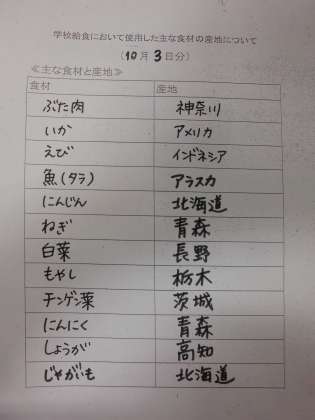 学校給食において使用した主な食材の産地について
(10月3日分)
≪主な食材と産地≫
食材 産地
ぶた肉 神奈川
いか アメリカ
えび インドネシア
魚(タラ) アラスカ
にんじん 北海道
ねぎ 青森
白菜 長野
もやし 栃木
チンゲン菜 茨城
にんにく 青森
しょうが 高知
じゃがいも 北海道